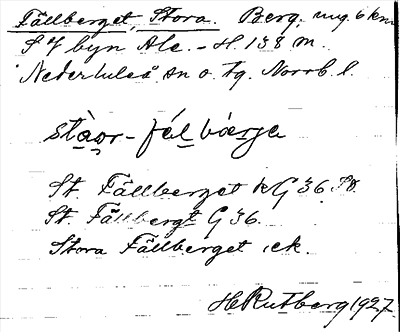 Fällberget, Stora. Berg, ung. 6 km
S f byn Ale. - H. 138 m.
Nederluleå sn o. tg. Norrb. l.
stàor-fél bærje
St. Fällberget kG 36 Sv.
St. Fällbergt G 36.
Stora Fällberget ek.
H Rutberg 1927